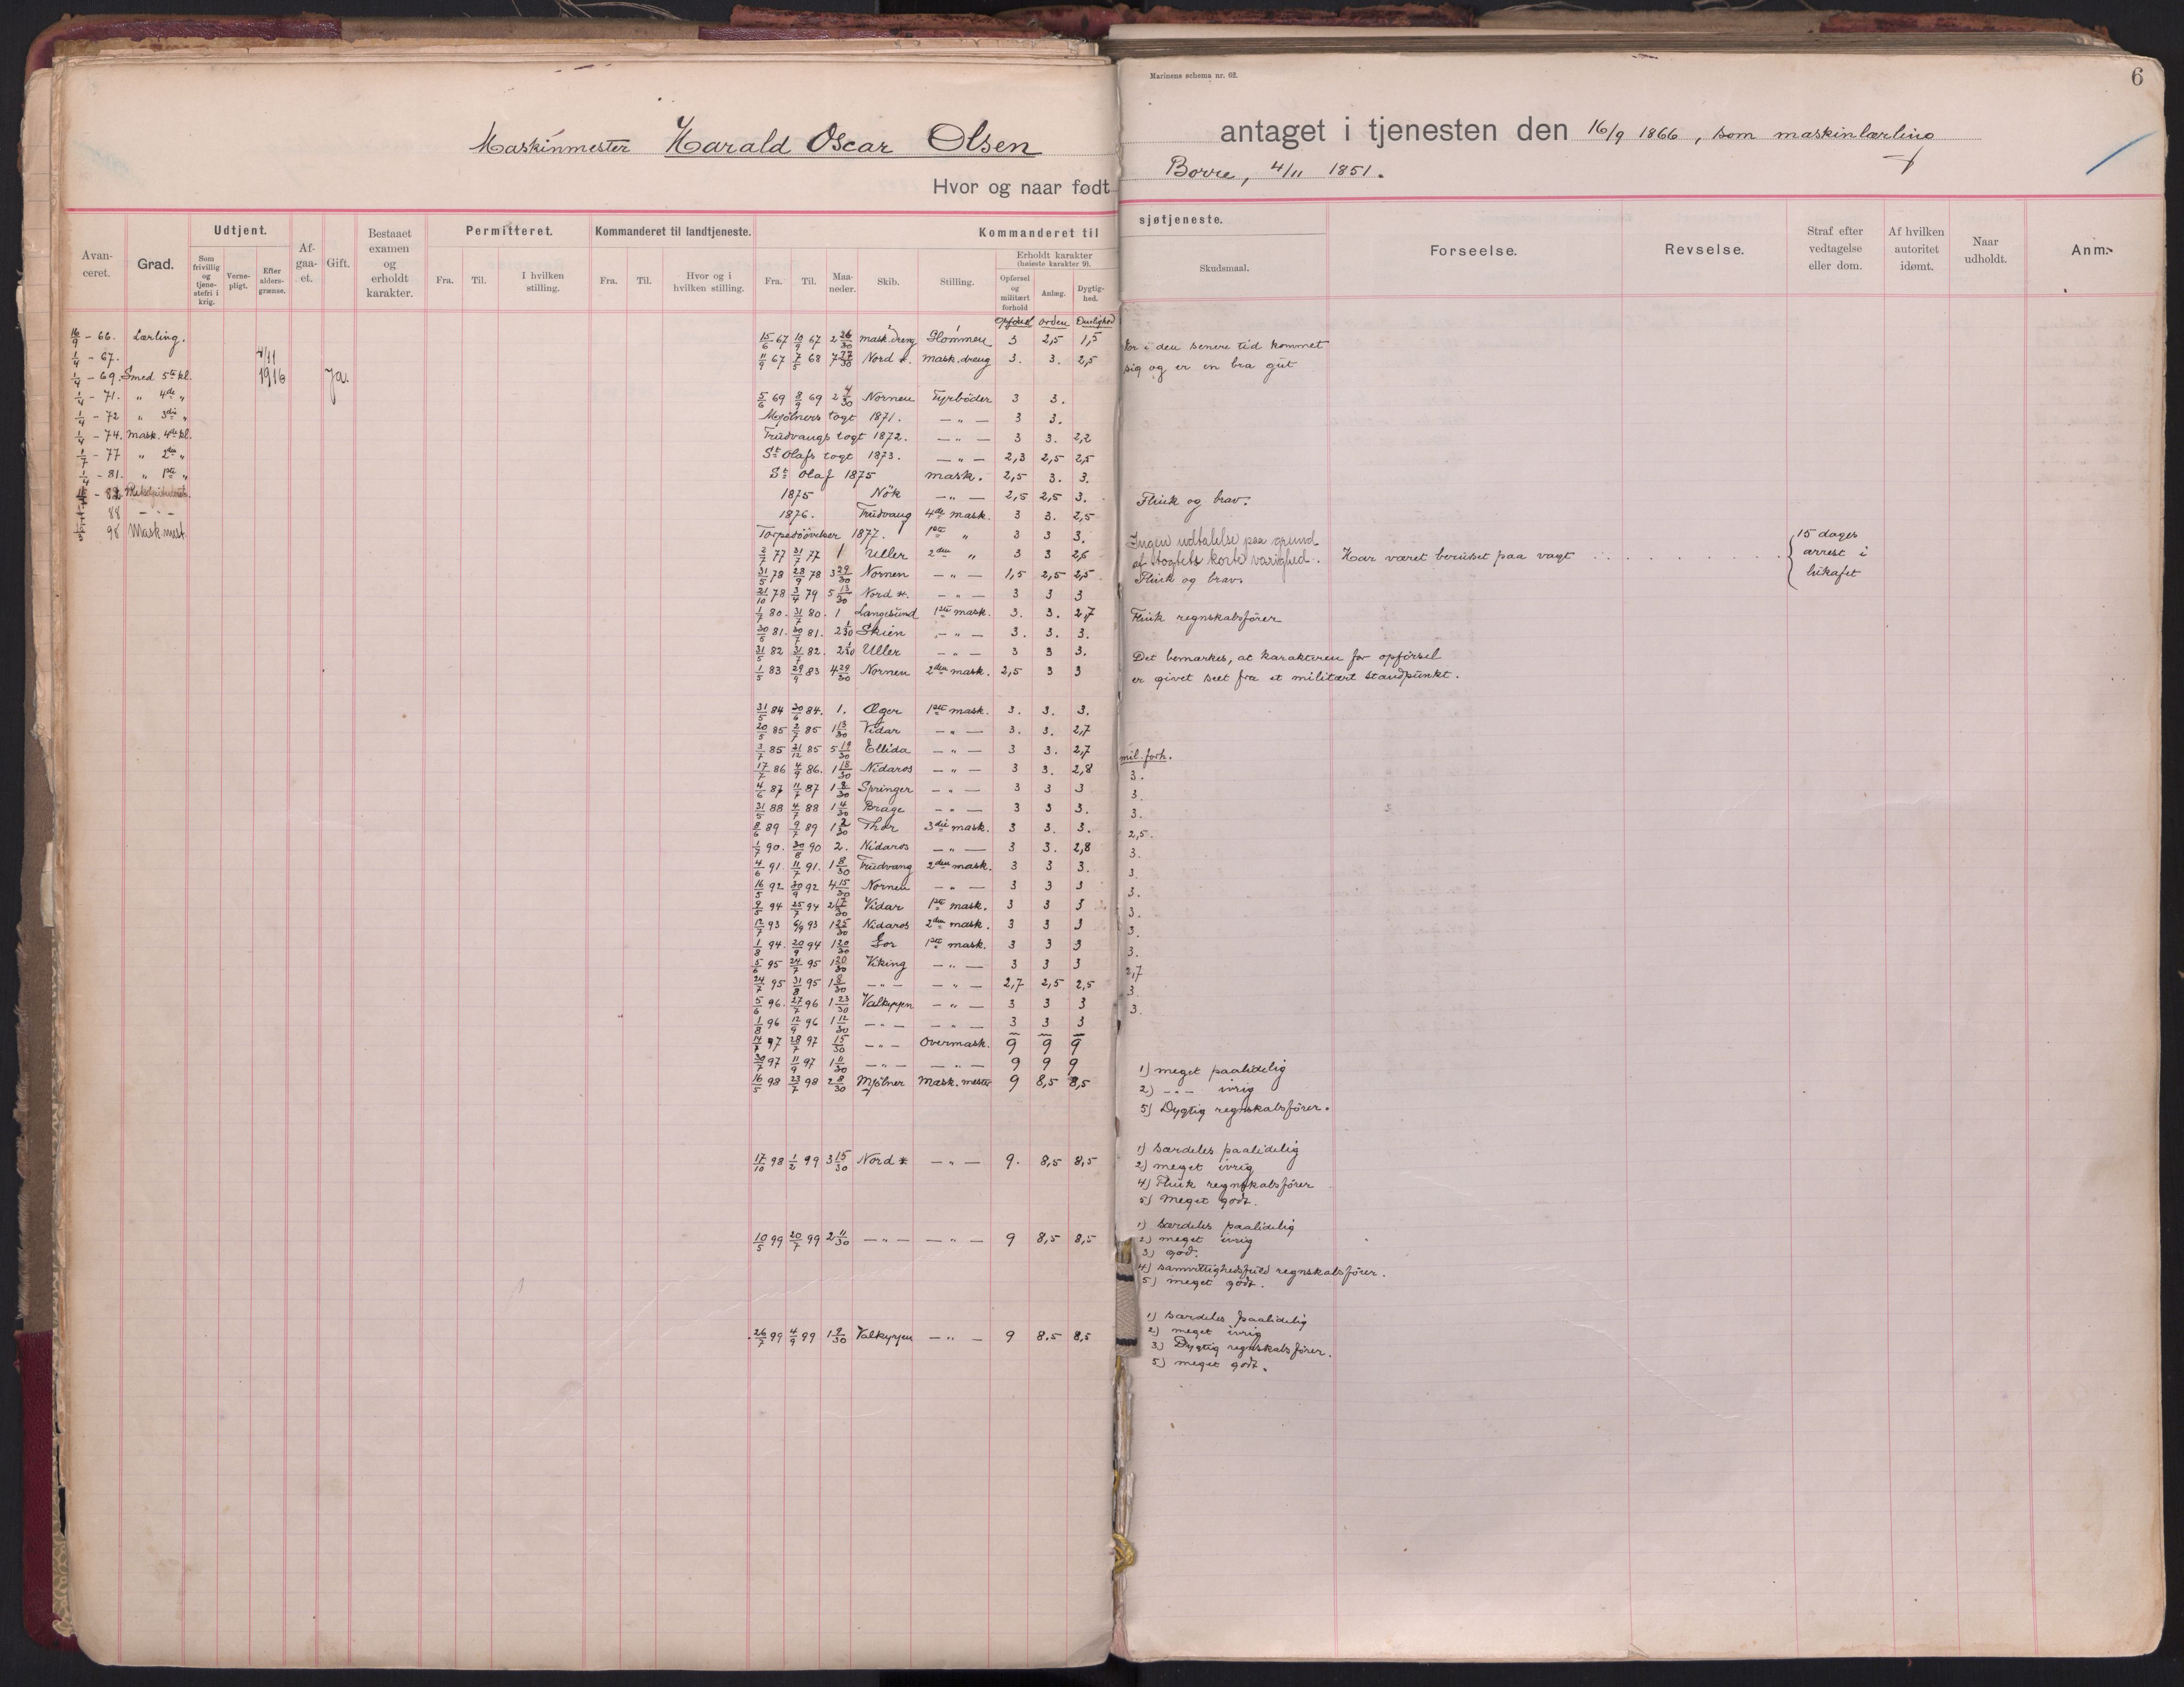 Marinens schema nr. 62.
6
Maskinmester Harald Oscar Olsen
antaget i tjenesten den 16/9 1866, som maskinlærling
Hvor og naar født Borre, 4/11 1851.
Avanceret. Grad. Udtjent. Afgaaet. Gift. Bestaaet examen og erholdt karakter. Permitteret. Kommanderet til landtjeneste. Kommanderet til
Som frivillig og tjenestefri i krig. Vernepligt. Efter aldersgrænse. Fra. Til. I hvilken stilling. Fra. Til. Hvor og i hvilken stilling. Fra. Til. Maaneder. Skib. Stilling. Erholdt karakter (høieste karakter 9).
Opførsel og militært forhold Anlæg. Dygtighed.
sjøtjeneste.
Skudsmaal. Forseelse. Revselse. Straf efter vedtagelse eller dom. Af hvilken autoritet idømt. Naar udholdt. Anm.
16/9 - 66. Lærling.
1/4 - 67.
1/4 - 69. Smed 5te kl.
1/4 - 71. " 4de "
1/4 - 72 " 3die "
1/4 - 74. Mask. 4de kl.
1/7 - 77 " 2den "
1/4 - 81. " 1ste "
- 82
88 - " -
98 Mask.mest.
4/11
1916
Ja.
Opførsel orden Duelighed
15/6 67 10/9 67 2 26/30 mask.dreng Glommen 3 2,5 1,5
11/9 67 7/5 68 7 27/30 Nord *. mask.dreng 3. 3. 2,5
5/6 69 8/9 69 2 4/30 Nornen Fyrbøder 3 3.
Mjølners togt 1871. — " — 3 3.
Trudvangs togt 1872. — " — 3 3. 2,2
St Olafs togt 1873. — " — 2,3 2,5 2,5
St Olaf 1875 mask. 2,5 3. 3.
1875 Nøk — " — 2,5 2,5 3.
1876. Trudvang 4de mask. 3 3. 2,5
Torpedoøvelser 1877. 1ste " 3 3 3.
2/7 77 31/7 77 1 Uller 2den " 3 3 2,6
31/5 78 28/9 78 3 29/30 Nornen — " — 1,5 2,5 2,5
21/10 78 3/4 79 5 13/30 Nord *. — " — 3 3 3
1/7 80. 31/7 80. 1 Langesund 1ste mask. 3. 3. 2,7
30/5 81. 30/7 81. 2 1/30 Skien — " — 3. 3. 3.
31/5 82 31/7 82. 2 1/30 Uller — " — 3 3 3.
1/5 83 29/9 83 4 29/30 Nornen 2den mask. 2,5 3 3
31/5 84 30/6 84. 1. Æger 1ste mask. 3. 3. 3.
20/5 85 2/7 85 1 13/30 Vidar — " — 3. 3. 2,7
3/7 85 21/12 85 5 19/30 Ellida — " — 3 3. 2,7
17/7 86 4/9 86. 1 18/30 Nidaros — " — 3 3. 2,8
4/6 87 11/7 87 1 8/30 Springer — " — 3 3 3
31/5 88 4/7 88 1 4/30 Brage — " — 3 3 3.
8/6 89 9/7 89 1 2/30 Thor 3die mask. 3 3. 3.
1/7 90. 30/8 90 2. Nidaros — " — 3 3. 2,8
4/6 91. 11/7 91. 1 8/30 Trudvang 2den mask. 3 3 3.
16/5 92 30/9 92 4 15/30 Nornen — " — 3 3 3
9/5 94 25/7 94 2 17/30 Vidar 1ste mask. 3 3 3
12/7 93 6/9 93 1 25/30 Nidaros 2den mask. 3 3 3
1/8 94. 20/9 94 1 20/30 Gor 1ste mask. 3 3 3
5/6 95 24/7 95 1 20/30 Viking — " — 3 3 3
24/7 95 31/8 95 1 8/30 — " — — " — 2,7 2,5 2,5
5/6 96. 27/7 96 1 23/30 Valkyrjen — " — 3 3 3
1/8 96 12/9 96 1 12/30 — " — — " — 3 3 3
14/7 97 28/7 97 15/30 — " — Overmask. 9 9 9
30/7 97 11/9 97 1 11/30 — " — — " — 9 9 9
16/5 98 23/7 98 2 8/30 Mjølner Mask.mester 9 8,5 8,5
17/10 98 1/2 99 3 15/30 Nord * — " — 9. 8,5 8,5
10/5 99 20/7 99 2 11/30 — " — — " — 9 8,5 8,5
26/7 99 4/9 99 1 9/30 Valkyrjen — " — 9 8,5 8,5
Har i den senere tid kommet
sig og er en bra gut
Flink og brav.
Ingen udtalelse paa grund
af togtets korte varighed. Har været beruset paa vagt 15 dages
arrest i
lukafet
Flink og brav.
Flink regnskabsfører
Det bemærkes, at karakteren for opførsel
er givet seet fra et militært standpunkt.
mil. forh.
3.
3.
3.
2,5.
3.
3.
3.
3.
3.
3.
2,7
3.
3.
1) meget paalidelig
2) — " — ivrig
5) Dygtig regnskabsfører.
1) særdeles paalidelig
2) meget ivrig
4) Flink regnskabsfører
5) Meget godt.
1) særdeles paalidelig
2) meget ivrig
3) god.
4) samvittighedsfuld regnskabsfører.
5) meget godt.
1) særdeles paalidelig
2) meget ivrig
3) Dygtig regnskabsfører.
5) meget godt.